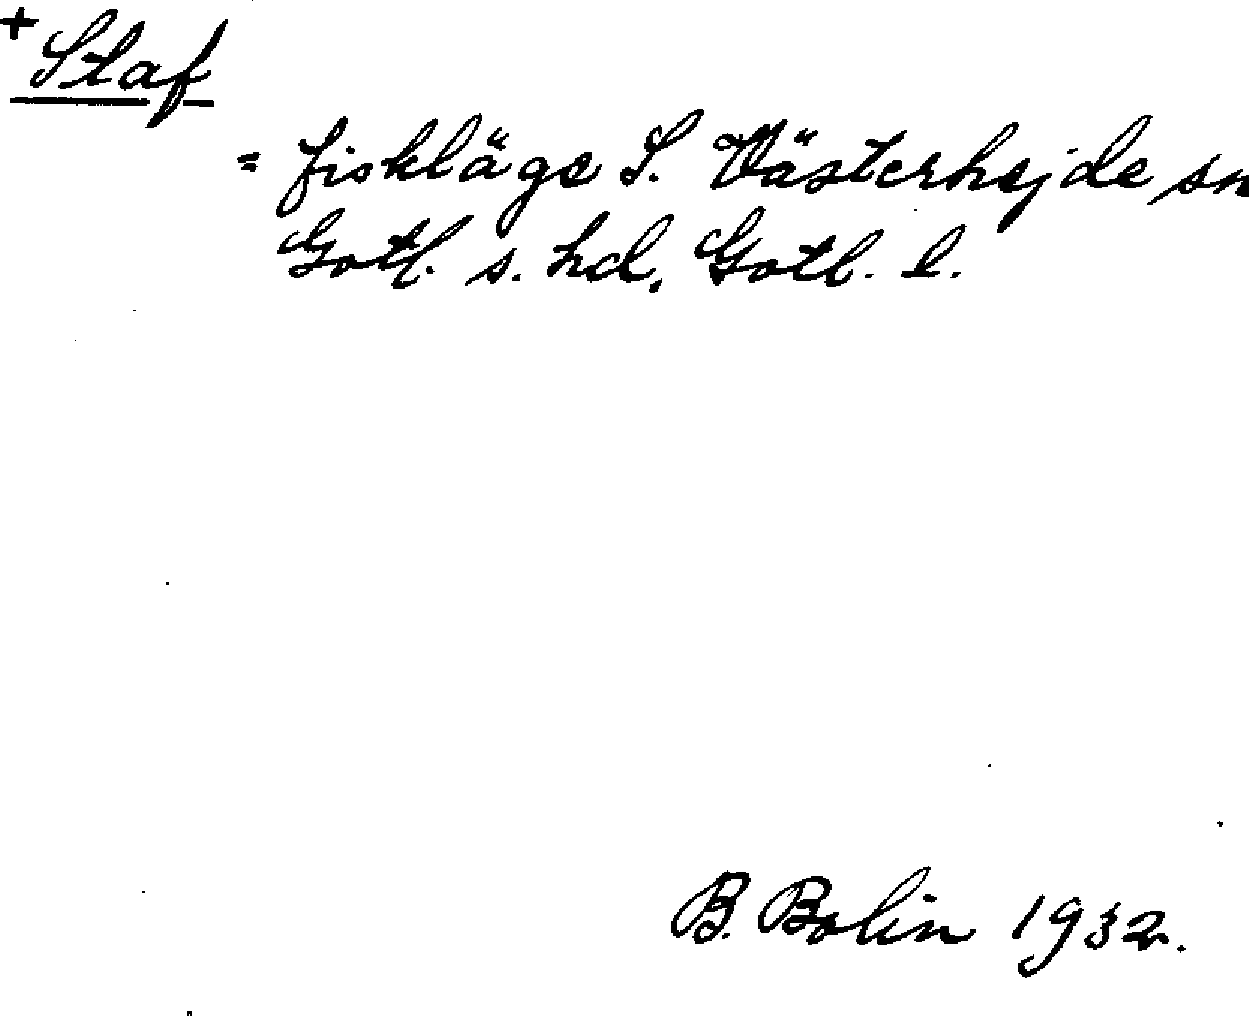 + Staf
= fiskläge S. Västerhejde sn
Gotl. s. hd, Gotl. l.
B. Bolin 1932.